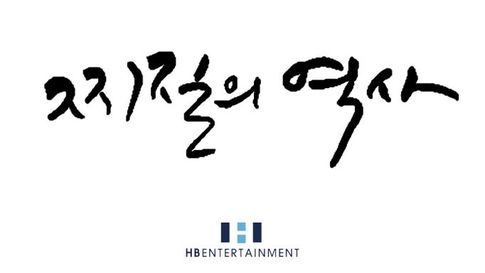 찌질의 역사
HBENTERTAINMENT